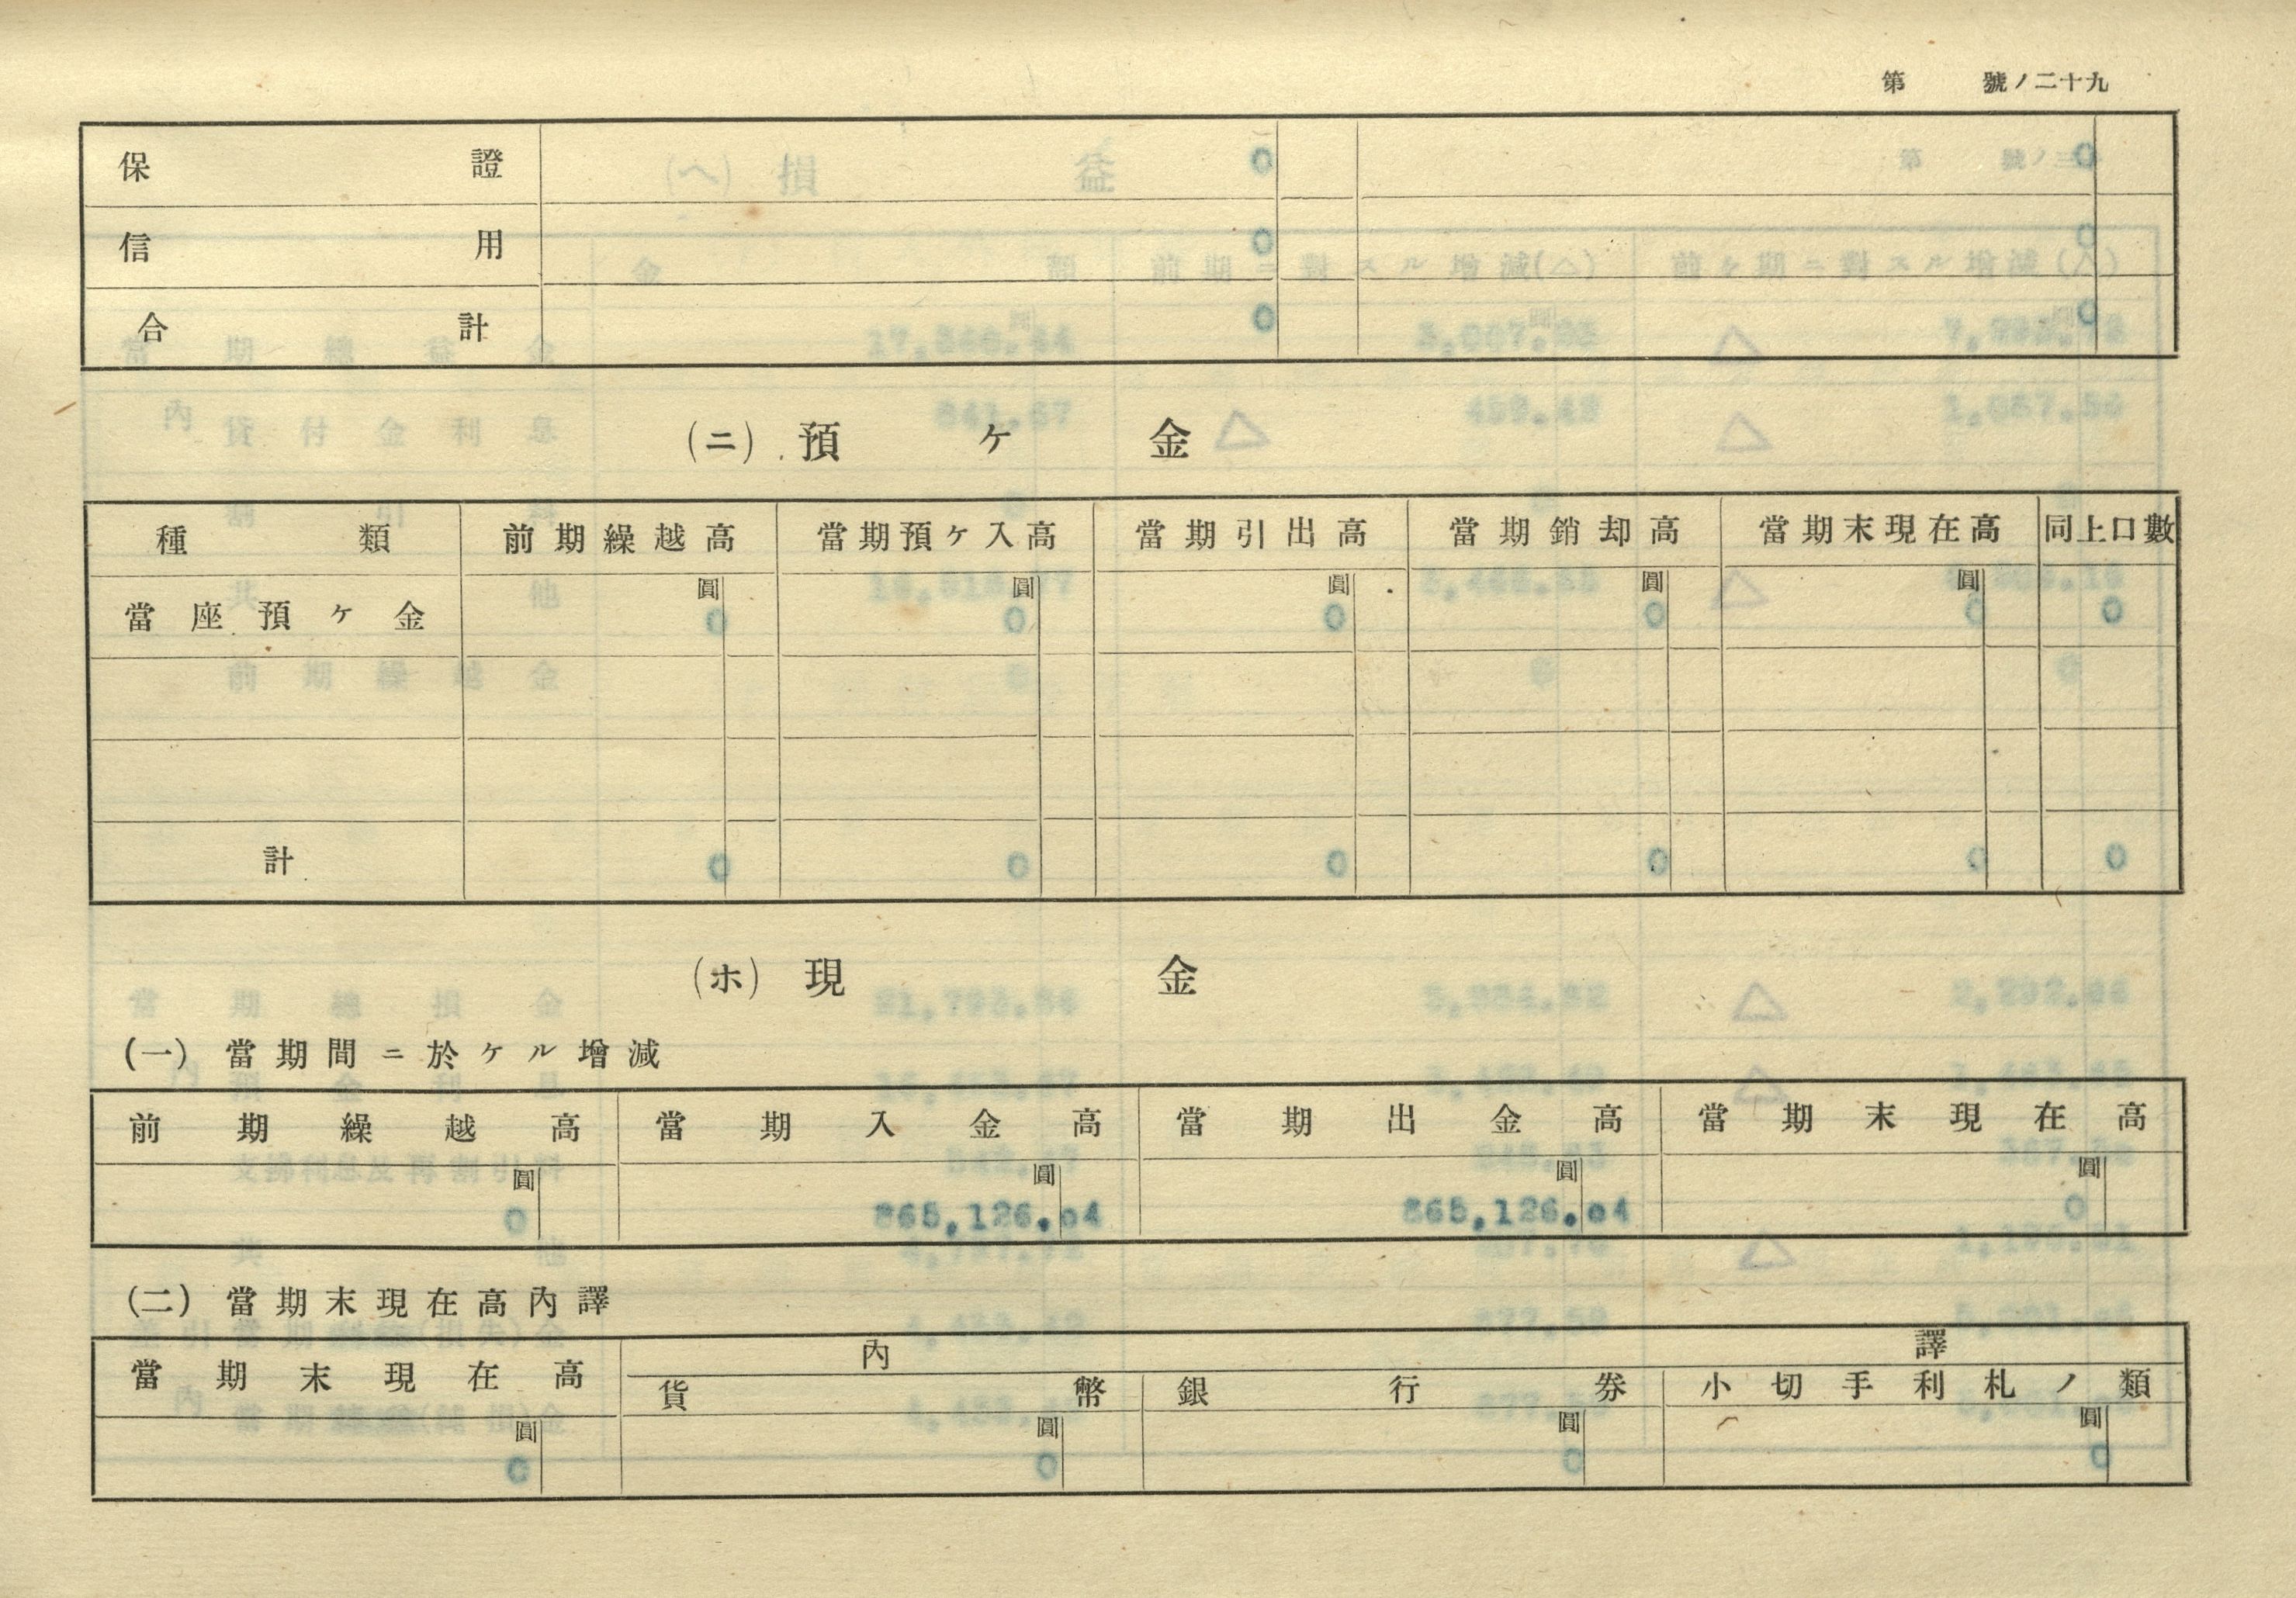 第 號ノ二十九
保證 0 0
信用 0 0
合計 0 0
(ニ) 預ケ金
種類 前期繰越高 當期預ケ入高 當期引出高 當期銷却高 當期末現在高 同上口數
圓 圓 圓 圓 圓
當座預ケ金 0 0 0 0 0 0
計 0 0 0 0 0 0
(ホ) 現金
(一) 當期間ニ於ケル增減
前期繰越高 當期入金高 當期出金高 當期末現在高
圓 圓 圓 圓
0 865,126.04 865,126.04 0
(二) 當期末現在高內譯
當期末現在高 內譯
貨幣 銀行券 小切手利札ノ類
圓 圓 圓 圓
0 0 0 0